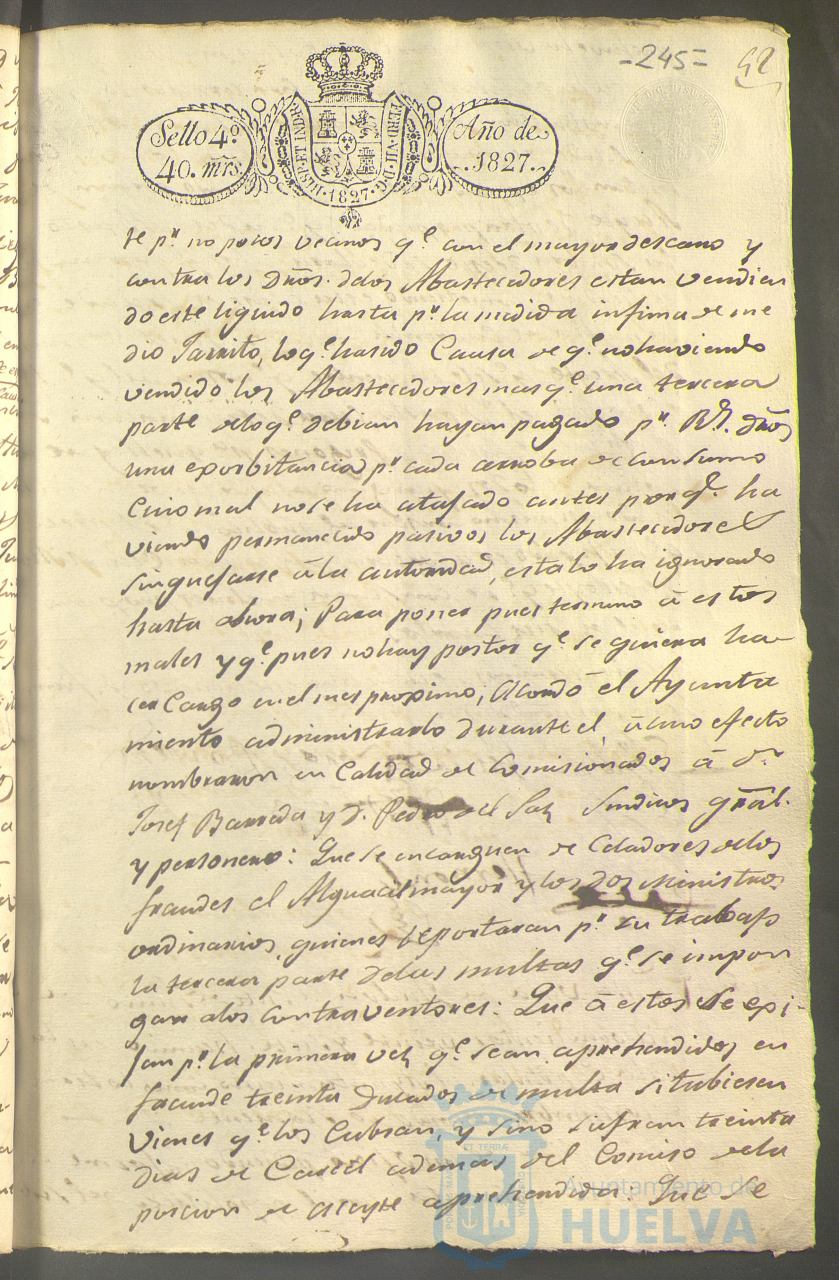 -245-
42
Sello 4º
40. mrs.
HISP. ET IND. R.
FERD. VII. D. G.
1827.
Año de
1827.
te pr. no pocos vecinos qe. con el mayor descaro y
contra los Dros. delos Abastecedores estan vendien
do este liquido hasta pr. la medida infima de me
dio Jarrito, lo qe. ha sido Causa de qe. no haviendo
vendido los Abastecedores mas qe. una tercera
parte delo qe. debian hayan pagado pr. Rs. dros
una exorbitancia pr. cada arroba de consumo
Cuio mal no se ha atajado antes porqe. ha
viendo permanecido pasivos los Abastecedores
sin quejarse â la autoridad, esta lo ha ignorado
hasta ahora; Para poner pues termino â estos
males y qe. pues no hay postor qe. se quiera ha-
cer Cargo en el mes proximo; Acordó el Ayunta
miento administrarlo durante el, â cuio efecto
nombraron en Calidad de Comisionados â Dn.
Josef Barreda y D. Pedro del Saz Sindicos gral.
y personero: Que se encarguen de Celadores delos
fraudes el Alguacil mayor y los dos Ministros
ordinarios, quienes reportaran pr. su trabajo
la tercera parte delas multas qe. se impon
gan alos contraventores: Que â estos se exi-
jan pr. la primera vez qe. sean aprehendidos en
fraude treinta Ducados de multa si tubiesen
Vienes qe. los Cubran, y sino sufran treinta
dias de Carcel ademas del Comiso dela
porcion de aceyte aprehendida: Que se
Ayuntamiento de
HUELVA